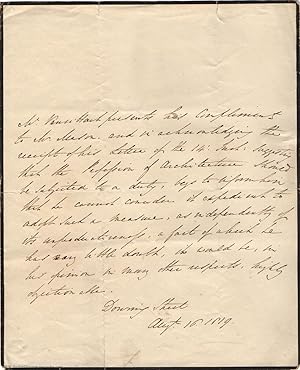 Mr Vansittart presents his Compliments
to Mr Mason, and in acknowledging the
receipt of his Letter of the 14 Inst. suggesting
that the Profession of Architecture should
be subjected to a duty, begs to inform him
that he cannot consider it expedient to
adopt such a measure, as independently of
its unproductiveness, a fact of which he
has very little doubt, it would be, in
his opinion in many other respects, highly
objectionable.
Downing Street
Augt. 16. 1819.